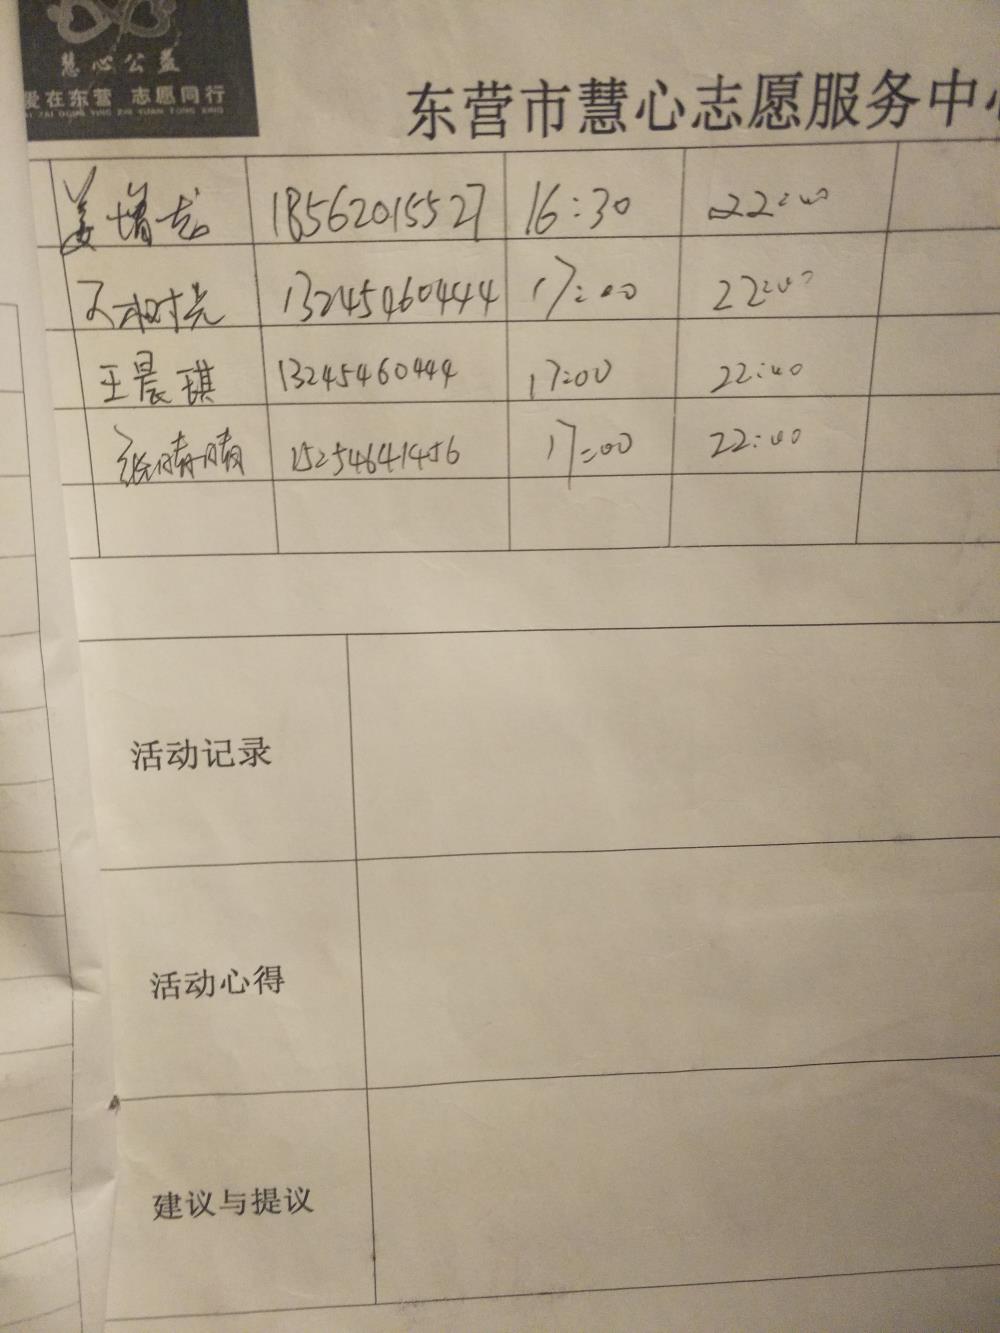 慧心公益
爱在东营 志愿同行
AI ZAI DONG YING ZHI YUAN TONG XING
东营市慧心志愿服务中心
姜增龙 18562015527 16:30 22:40
时光 13245460444 17:00 22:40
王晨琪 13245460444 17:00 22:40
张晴晴 15254641456 17:00 22:40
活动记录
活动心得
建议与提议